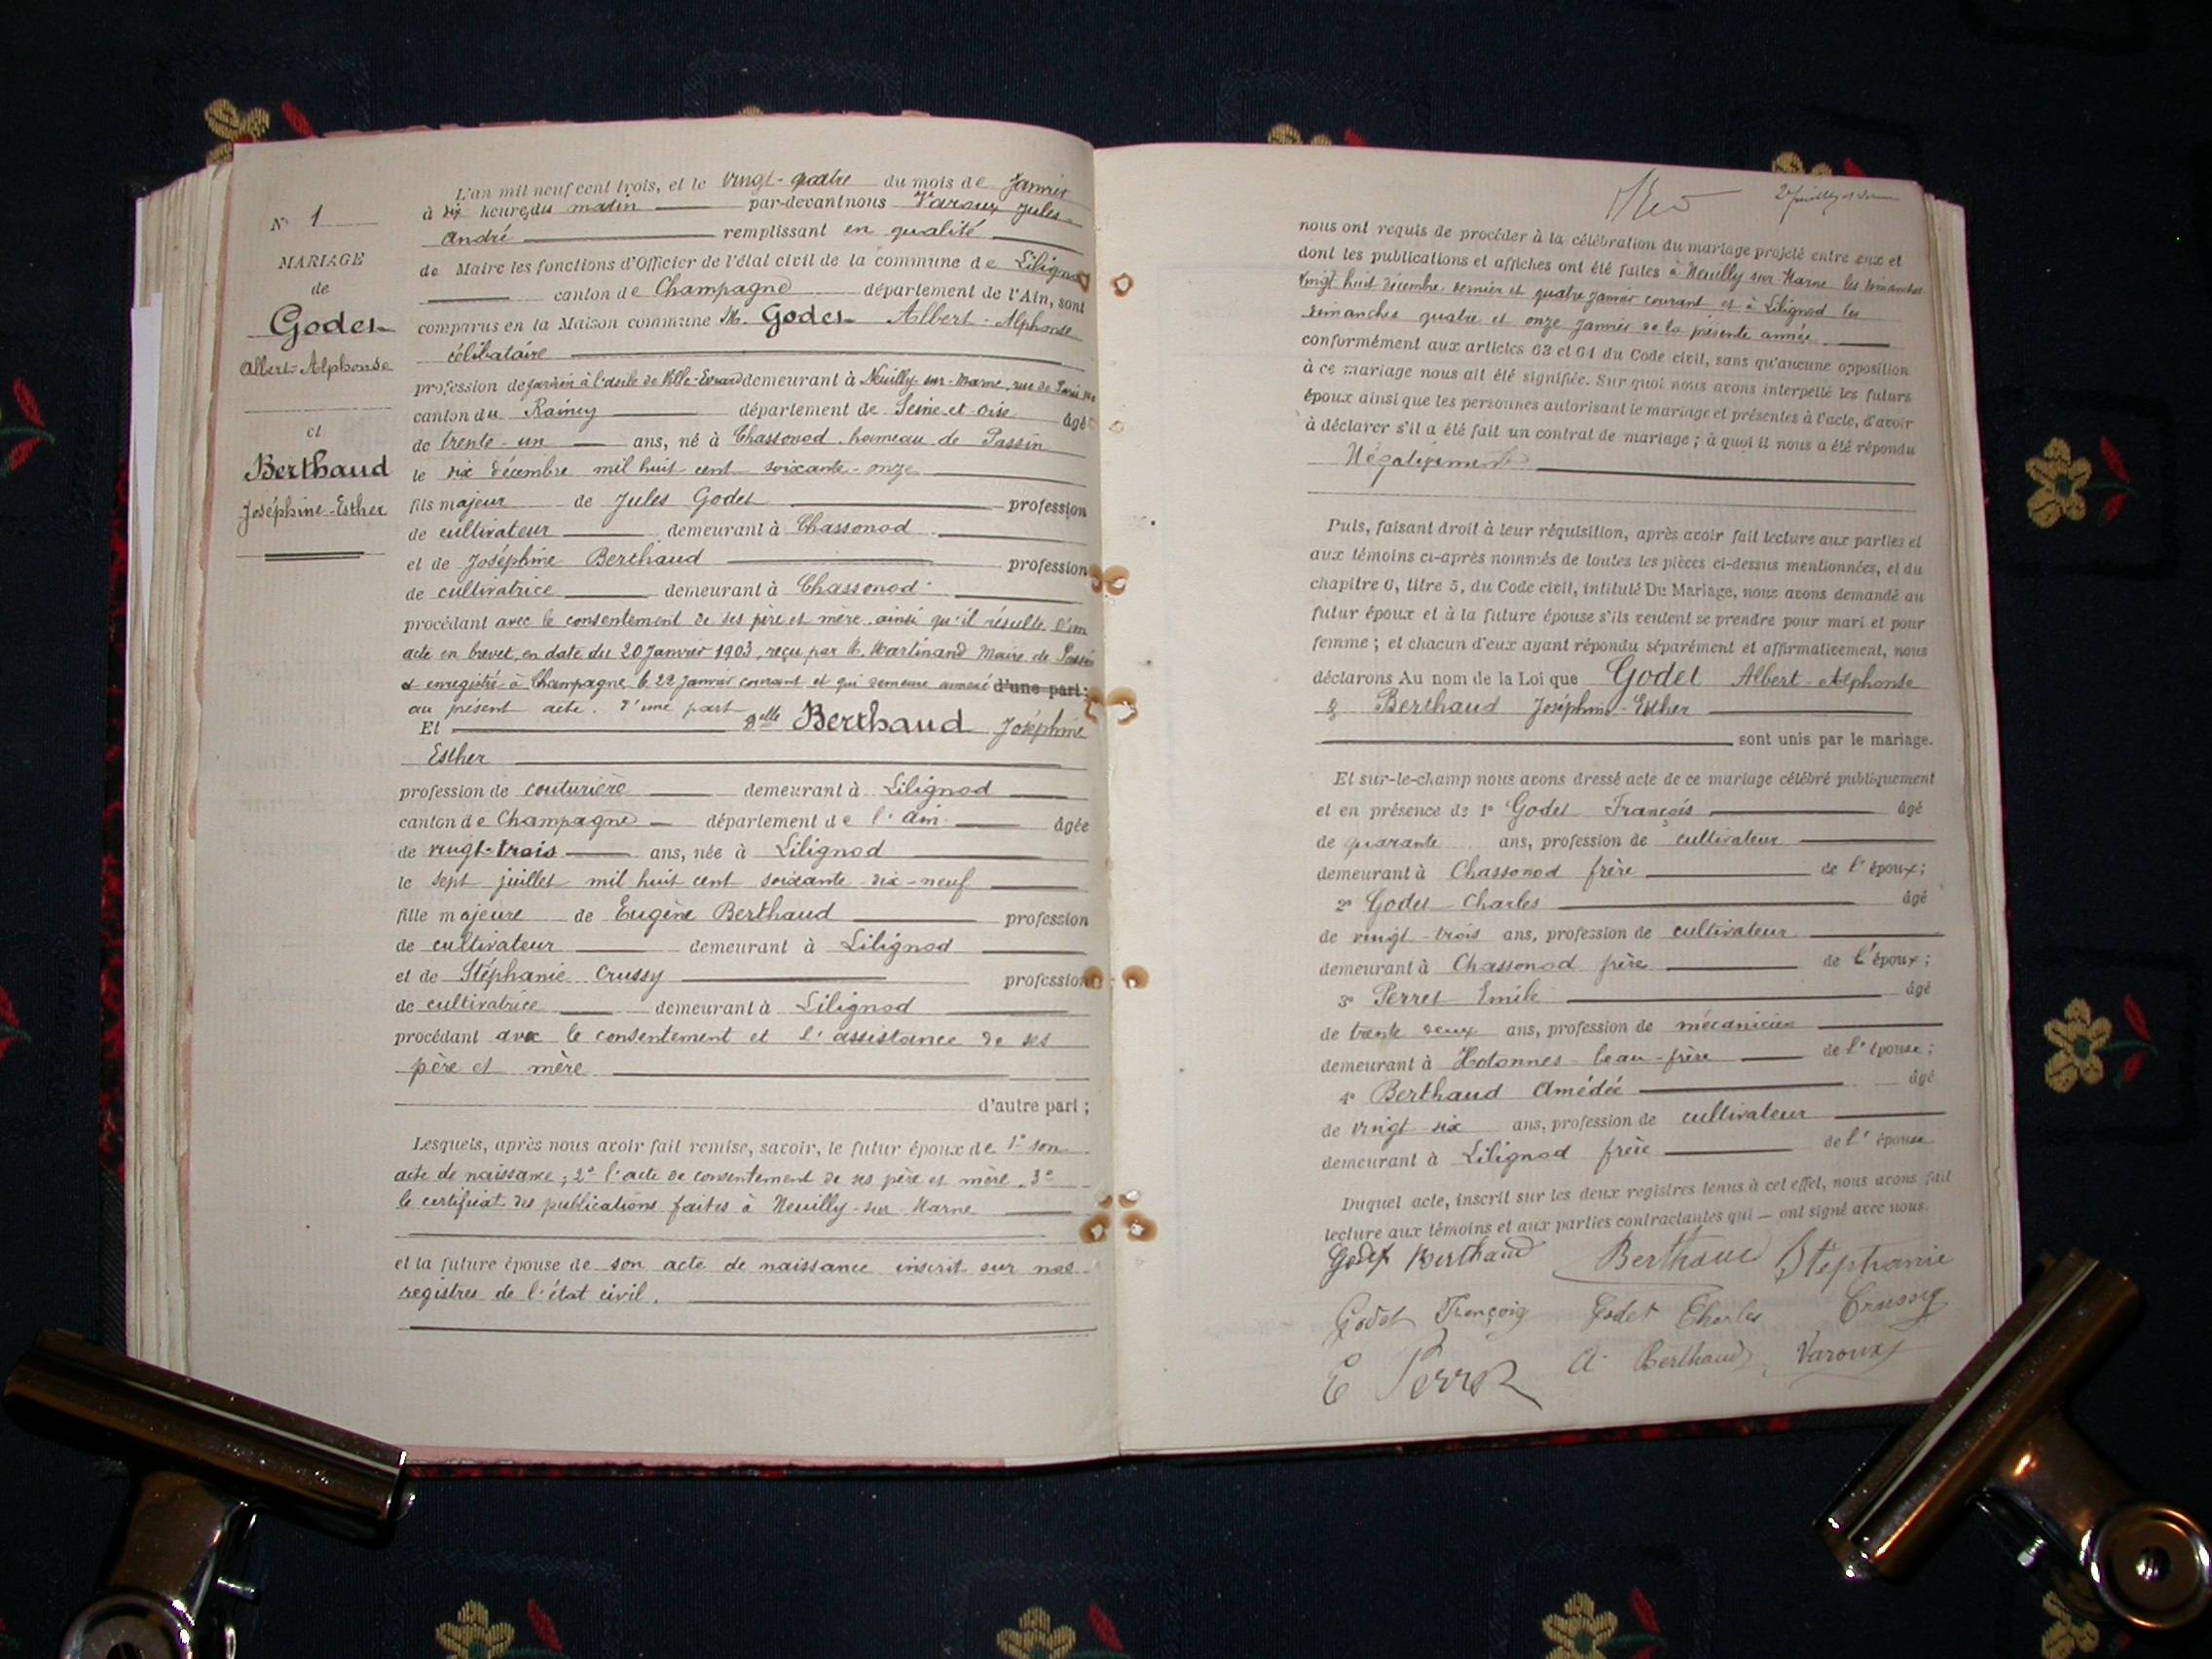 N° 1
MARIAGE
de
Godet
Albert-Alphonse
et
Berthaud
Joséphine-Esther
L'an mil neuf cent trois, et le vingt-quatre du mois de Janvier
à six heures du matin par-devant nous Varoux Jules
André remplissant en qualité
de Maire les fonctions d'Officier de l'état civil de la commune de Lilignod
canton de Champagne département de l'Ain, sont
comparus en la Maison commune M. Godet Albert-Alphonse
célibataire
profession de à l'asile de Ville-Evrard demeurant à Neuilly-sur-Marne, rue de Paris
canton du Rainey département de Seine et Oise âgé
de trente-un ans, né à Chassonod, hameau de Passin
le six décembre mil huit cent soixante-onze
fils majeur de Jules Godet profession
de cultivateur demeurant à Chassonod
et de Joséphine Berthaud profession
de cultivatrice demeurant à Chassonod
procédant avec le consentement de ses père et mère, ainsi qu'il résulte d'un
acte en brevet, en date du 20 Janvier 1903, reçu par M. Martinand Maire de Passin
et enregistré à Champagne le 22 Janvier courant et qui demeure annexé d'une part;
au présent acte. d'une part
Et Delle Berthaud Joséphine
Esther
profession de couturière demeurant à Lilignod
canton de Champagne département de l'Ain âgée
de vingt-trois ans, née à Lilignod
le sept juillet mil huit cent soixante-dix-neuf
fille majeure de Eugène Berthaud profession
de cultivateur demeurant à Lilignod
et de Stéphanie Crussy profession
de cultivatrice demeurant à Lilignod
procédant avec le consentement et l'assistance de ses
père et mère
d'autre part;
Lesquels, après nous avoir fait remise, savoir, le futur époux de 1° son
acte de naissance; 2° l'acte de consentement de ses père et mère. 3°
le certificat des publications faites à Neuilly-sur-Marne
et la future épouse de son acte de naissance inscrit sur nos
registres de l'état civil.
nous ont requis de procéder à la célébration du mariage projeté entre eux et
dont les publications et affiches ont été faites à Neuilly sur Marne les dimanches
vingt huit décembre dernier et quatre janvier courant et à Lilignod les
dimanches quatre et onze janvier de la présente année.
conformément aux articles 63 et 64 du Code civil, sans qu'aucune opposition
à ce mariage nous ait été signifiée. Sur quoi nous avons interpellé les futurs
époux ainsi que les personnes autorisant le mariage et présentes à l'acte, d'avoir
à déclarer s'il a été fait un contrat de mariage; à quoi il nous a été répondu
Négativement
Puis, faisant droit à leur réquisition, après avoir fait lecture aux parties et
aux témoins ci-après nommés de toutes les pièces ci-dessus mentionnées, et du
chapitre 6, titre 5, du Code civil, intitulé Du Mariage, nous avons demandé au
futur époux et à la future épouse s'ils veulent se prendre pour mari et pour
femme; et chacun d'eux ayant répondu séparément et affirmativement, nous
déclarons Au nom de la Loi que Godet Albert-Alphonse
& Berthaud Joséphine-Esther
sont unis par le mariage.
Et sur-le-champ nous avons dressé acte de ce mariage célébré publiquement
et en présence de 1° Godet François âgé
de quarante ans, profession de cultivateur
demeurant à Chassonod frère de l'époux;
2° Godet Charles âgé
de vingt-trois ans, profession de cultivateur
demeurant à Chassonod frère de l'époux;
3° Perret Emile âgé
de trente deux ans, profession de mécanicien
demeurant à Hotonnes beau-frère de l'épouse;
4° Berthaud Amédée âgé
de vingt six ans, profession de cultivateur
demeurant à Lilignod frère de l'épouse
Duquel acte, inscrit sur les deux registres tenus à cet effet, nous avons fait
lecture aux témoins et aux parties contractantes qui ont signé avec nous.
Godet Berthaud Berthaud Stéphanie
Godet François Godet Charles Crussy
E Perret A. Berthaud Varoux